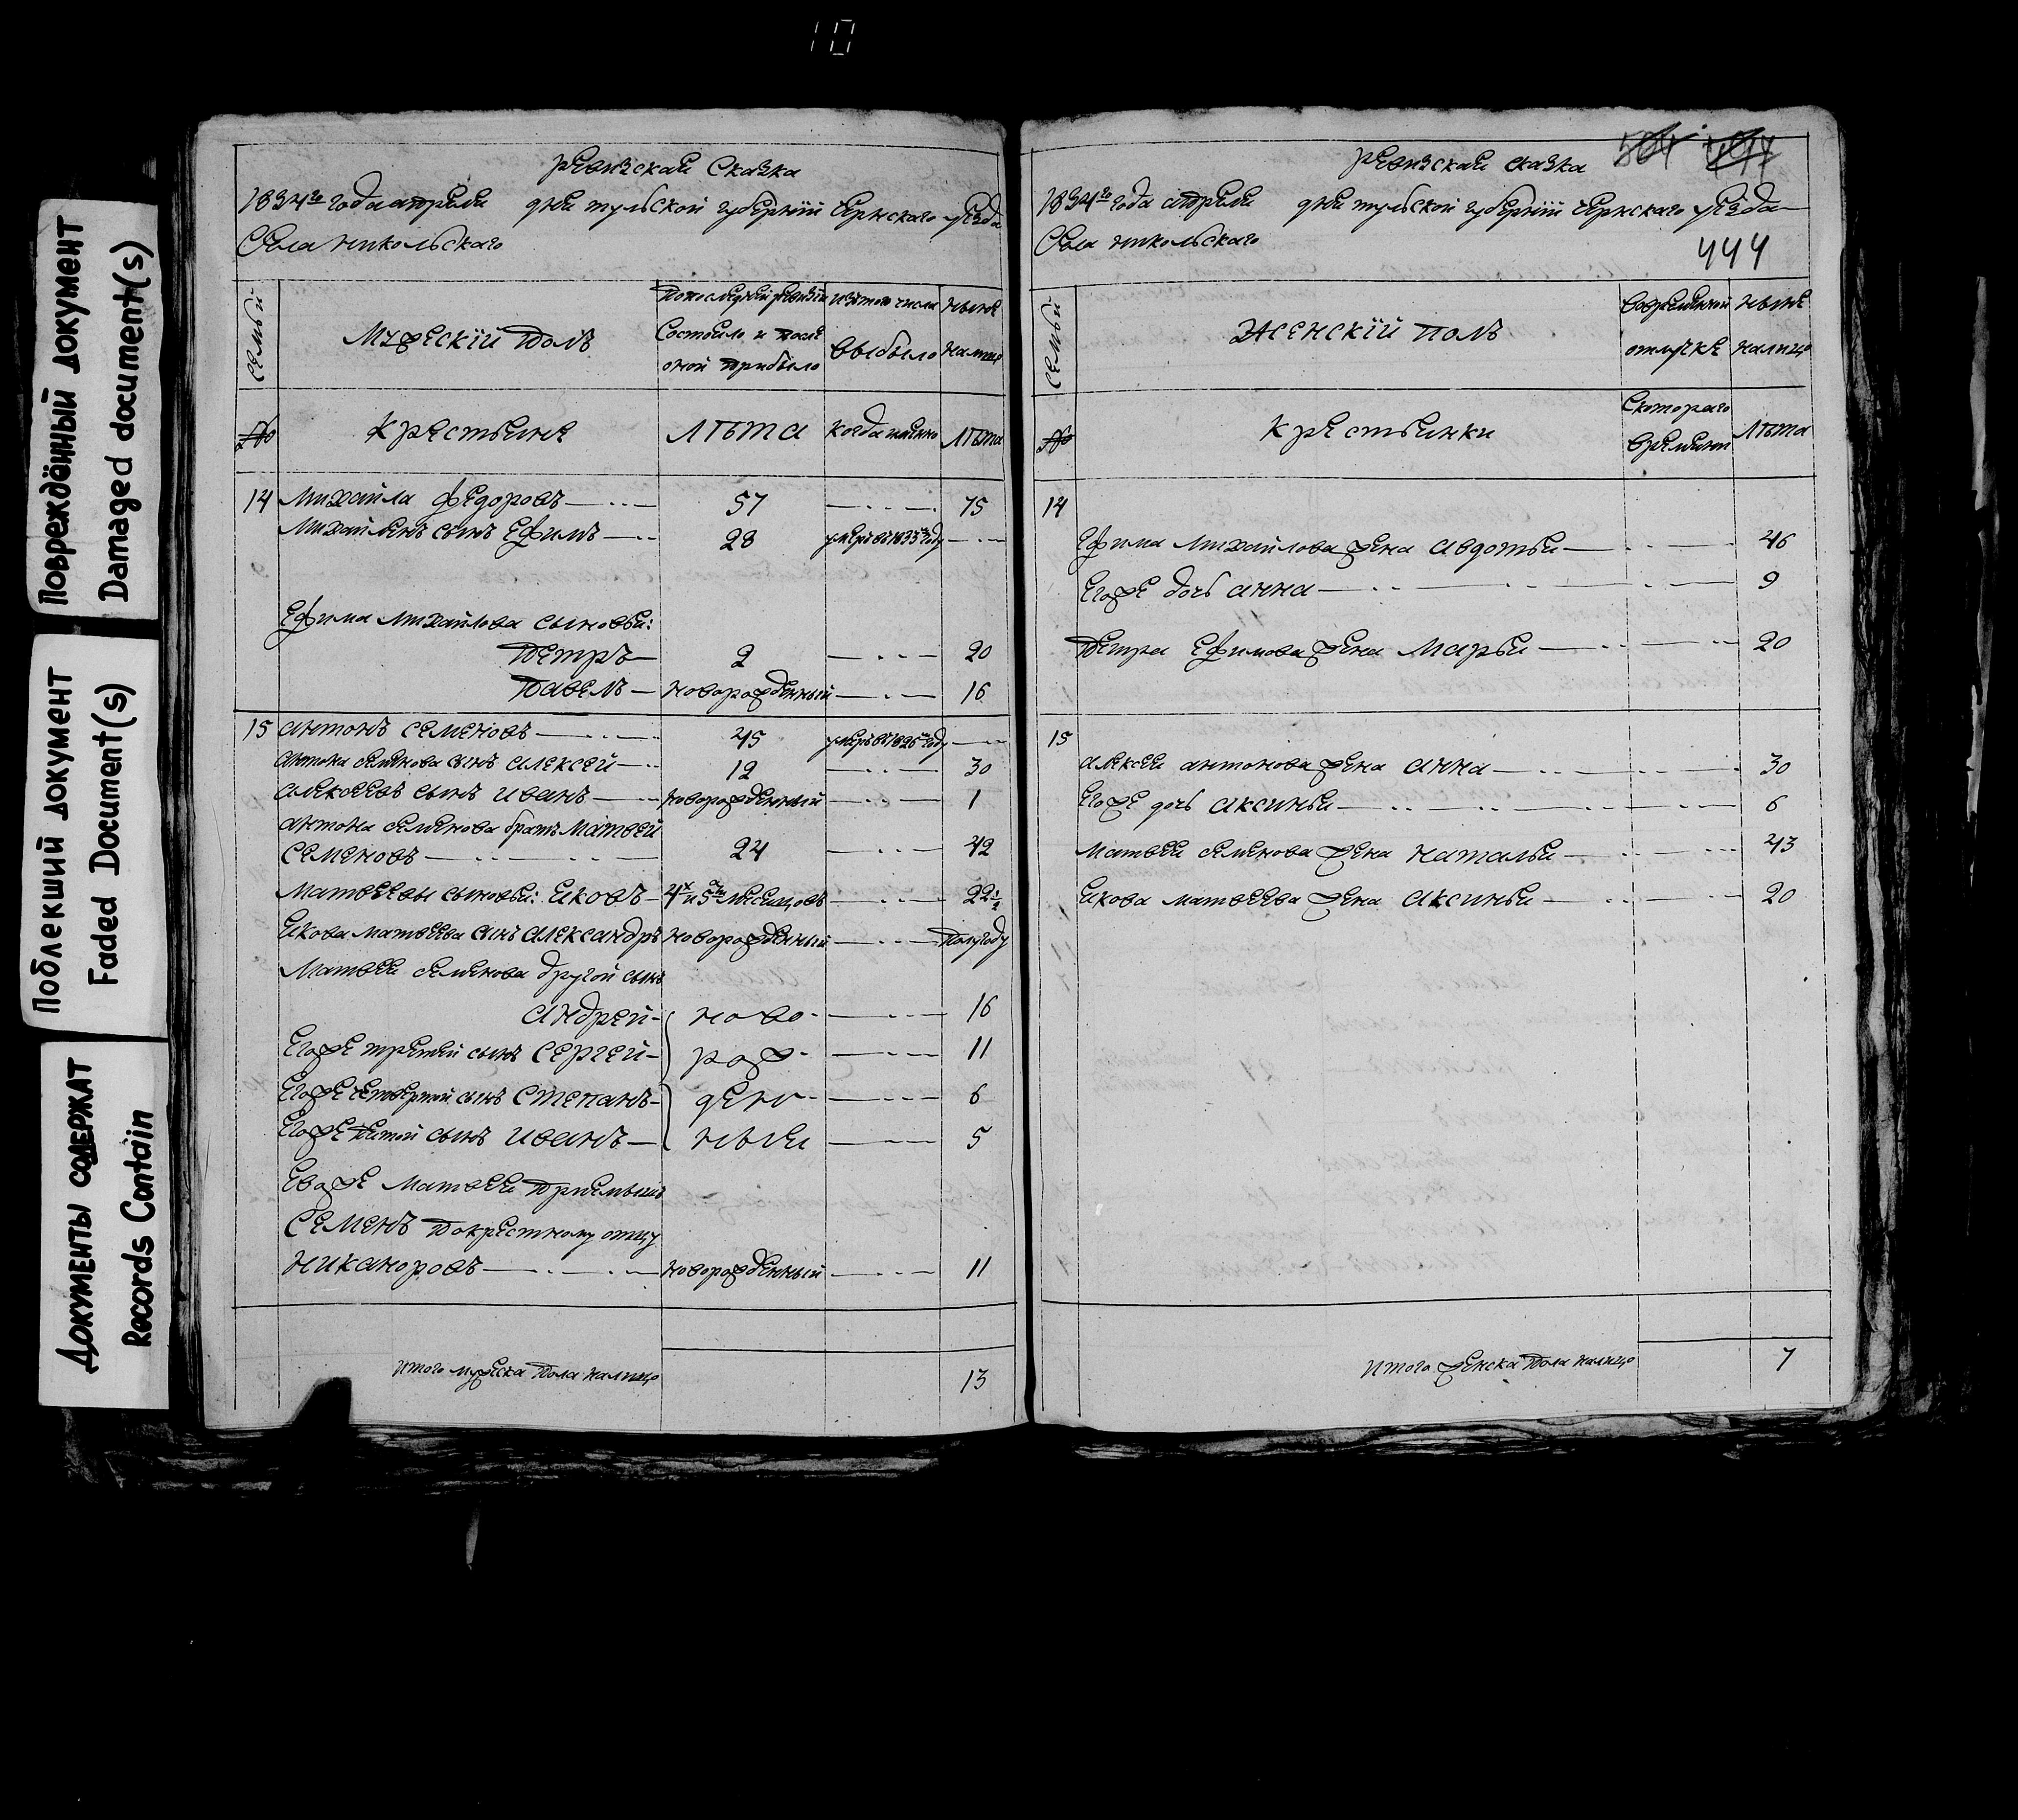 10
Повреждённый документ
Damaged document(s)
Поблекший документ
Faded Document(s)
Документы содержат
Records Contain
Ревизская Сказка
1834го года апреля дня тульской губернїи Чернскаго уезда
Села никольскаго
Семьи
Мужескїй полъ
Попоследней ревизїи Состояло и после оной прибыло
изтого числа выбыло
ныне налицо
№
Крестьяне
Лѣта
Когда имянно
Лѣта
14 Михайла федоровъ 57 75
Михайлевъ сынъ Ефимъ 28 умеръ въ 1833м году
Ефима Михайлова сыновья:
Петръ 2 20
Павелъ новорожденный 16
15 антонъ семеновъ 45 умеръ въ 1826м году
антона семенова сынъ алексей 12 30
алексеевъ сынъ иванъ новорожденный 1
антона семенова братъ Матвей
семеновъ 24 42
Матвеевы сыновья: Яковъ 4х и 5ти месяцовъ 22½
Якова матвеева сынъ александръ новорожденный Полугоду
Матвея семенова другой сынъ
андрей ново- 16
Егоже третей сынъ Сергей рож- 11
Егоже четвертой сынъ Степанъ денг 6
Егоже пятой сынъ иванъ ныя 5
Евоже Матвея приемышъ
Семенъ покрестному отцу
Никаноровъ новорожденный 11
итого мужеска пола налицо 13
Ревизская сказка 504
1834го года апреля дня тульской губернїи чернскаго уезда
Села никольскаго
444
Семьи
Женскїй полъ
вовременной отлучке
ныне налицо
№
Крестьянки
Скотораго времяни
Лѣта
14
Ефима Михайлова жена авдотья 46
Егоже дочь анна 9
Петра Ефимова жена Марья 20
15
алексея антонова жена анна 30
Егоже дочь аксинья 6
Матвея семенова жена наталья 43
Якова матвеева жена аксинья 20
итого женска пола налицо 7